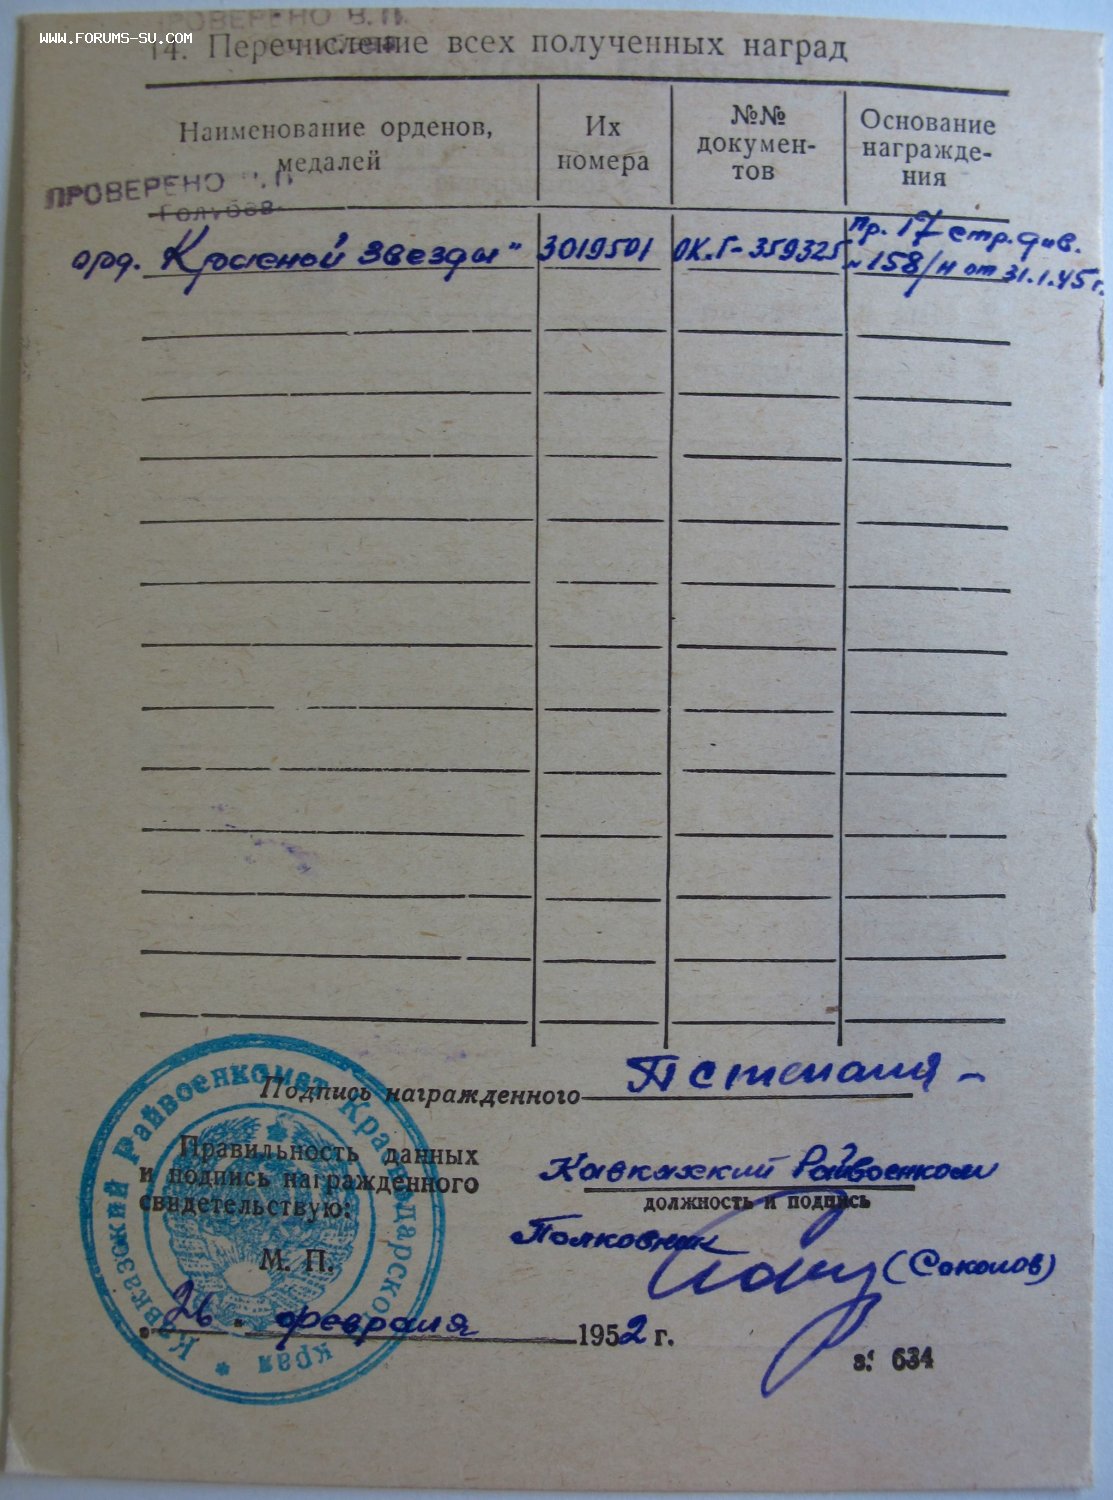 ПРОВЕРЕНО В.П.
WWW.FORUMS-SU.COM
14. Перечисление всех полученных наград
Наименование орденов, медалей
Их номера
№№ докумен-
тов
Основание
награжде-
ния
ПРОВЕРЕНО
Голубев
орд. Красной Звезды"
3019501
ОК.Г-359325
Пр. 17 стр. див.
№158/н от 31.1.45 г.
Подпись награжденного
Правильность данных
и подпись награжденного
свидетельствую:
М. П.
Кавказский Райвоенком
должность и подпись
Полковник
(Соколов)
"26" февраля 1952 г.
з. 634
Кавказский Райвоенкомат Краснодарского края